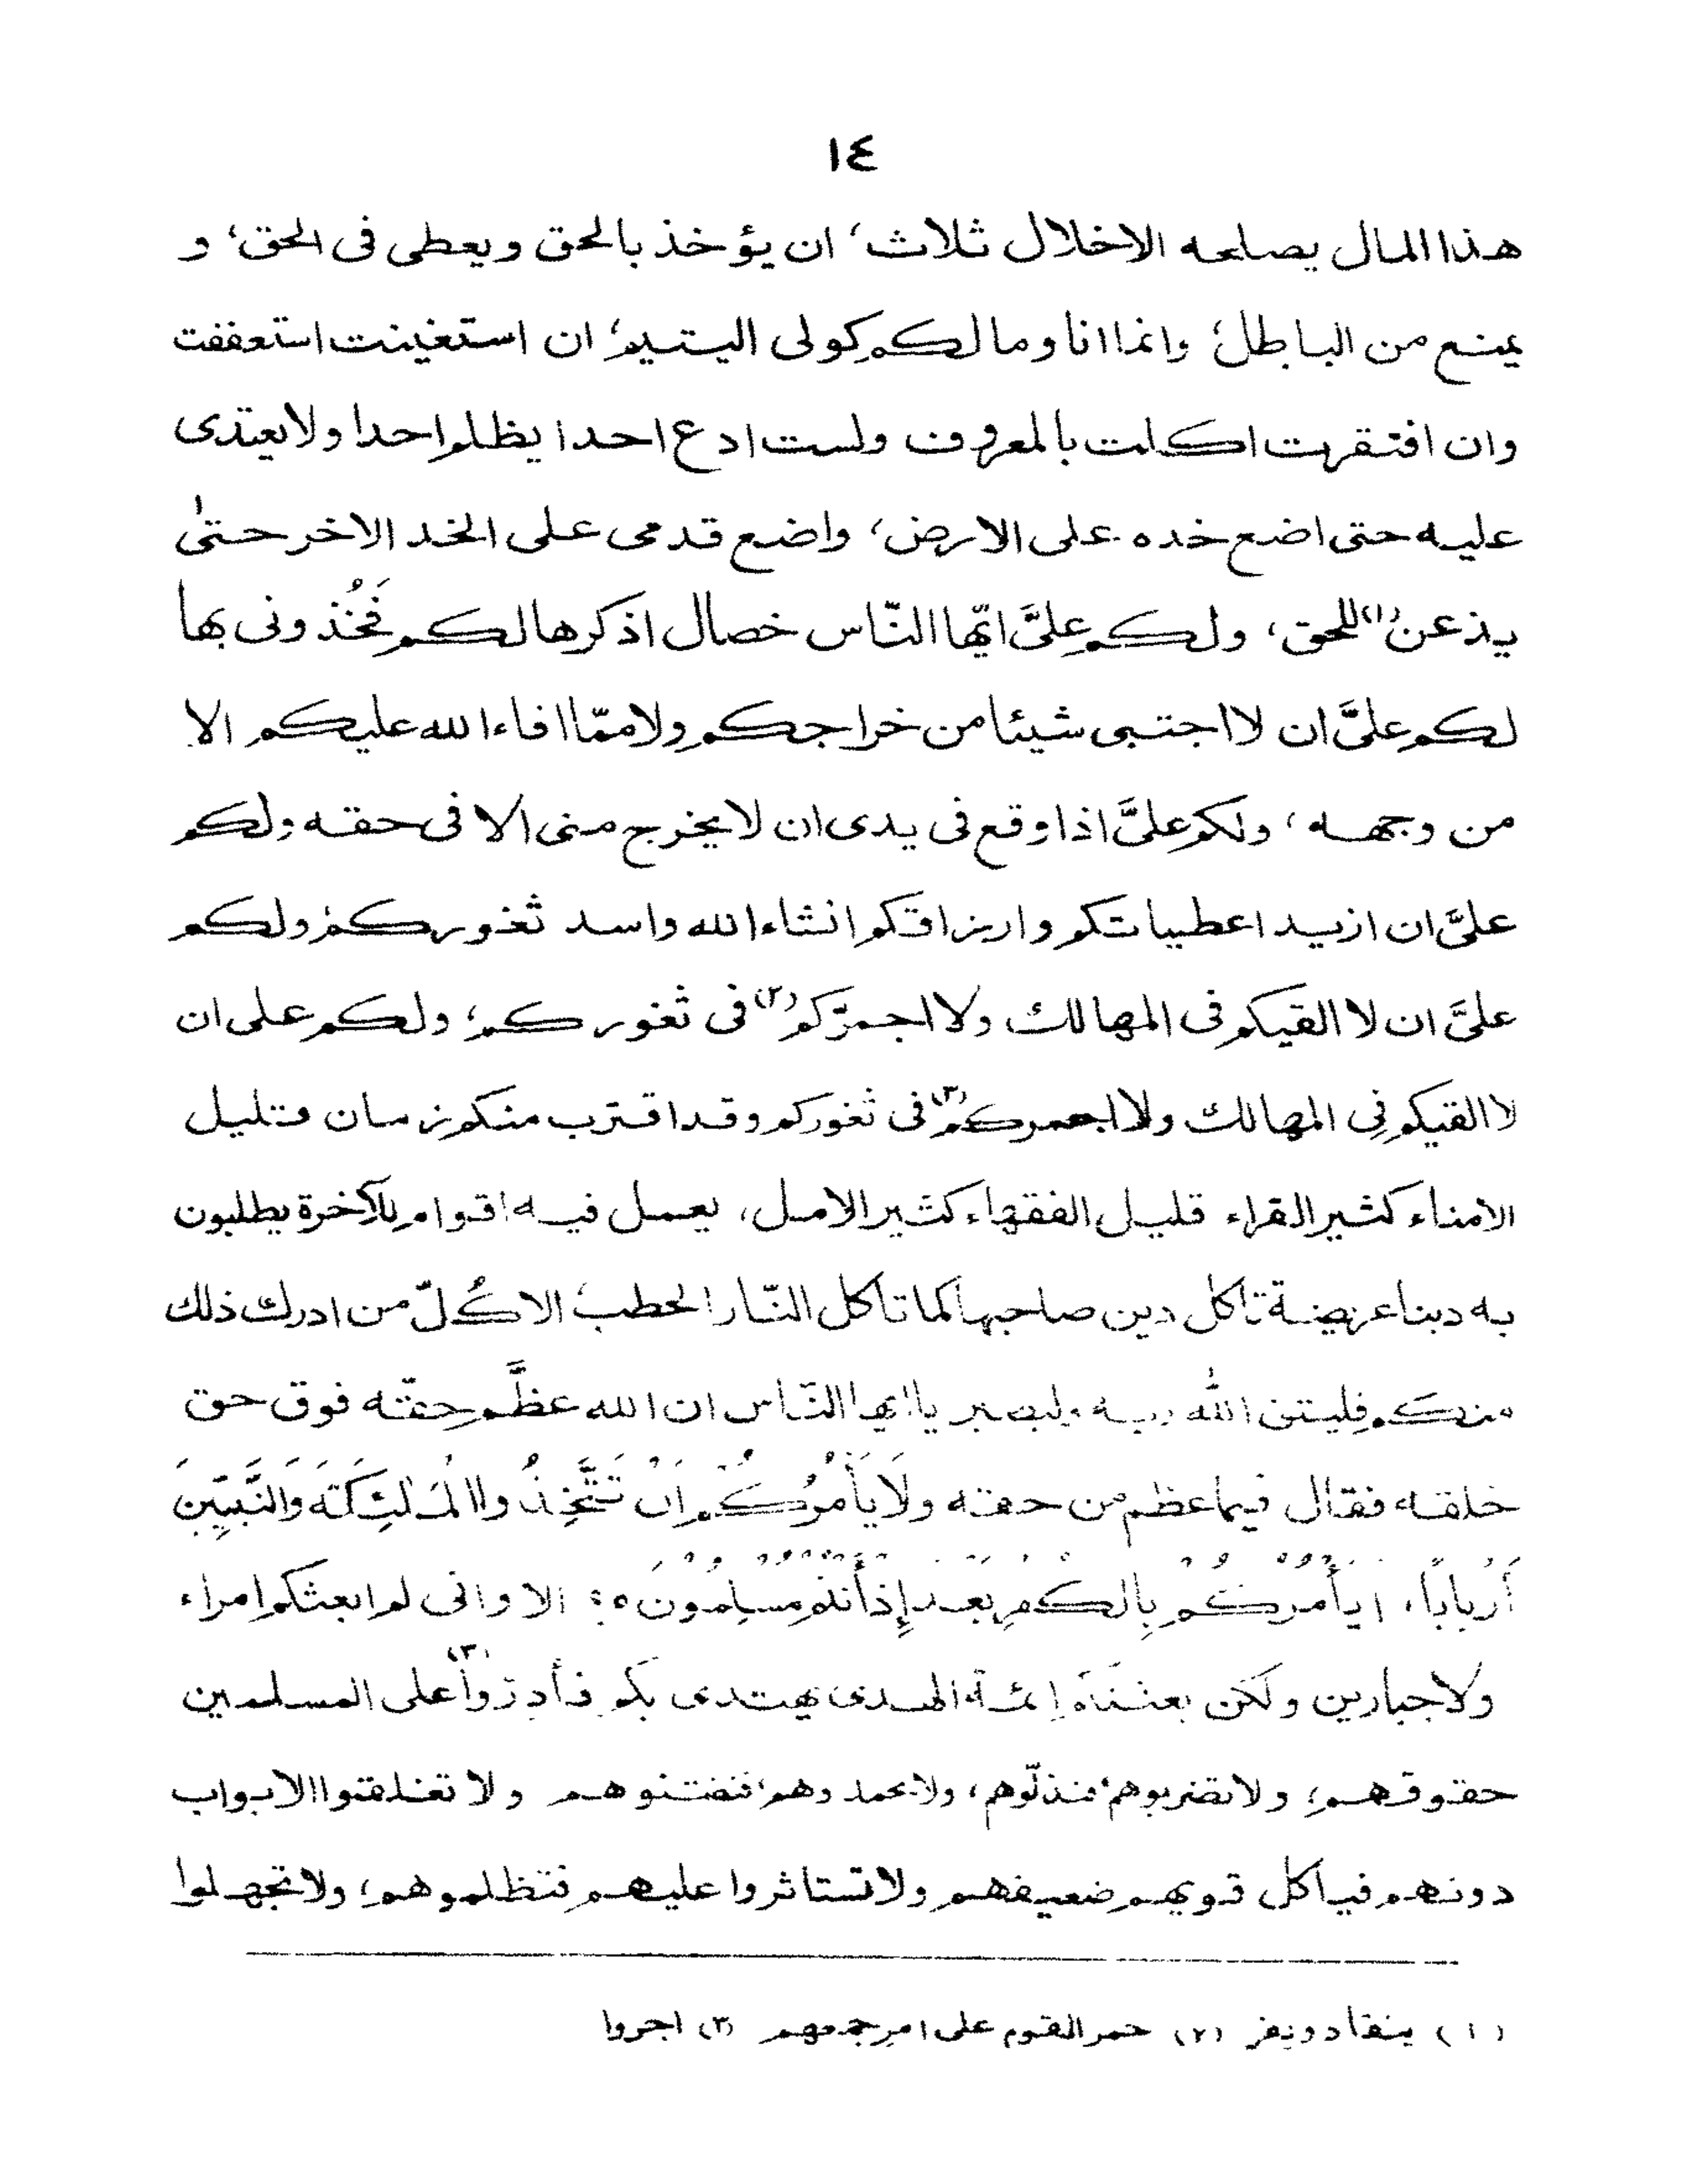 ١٤
هذا المال يصلحه الاخلال ثلاث، ان يؤخذ بالحق ويعطى فى الحق، و
يمنع من الباطل، وانما انا ومالكم كولى اليتيم، ان استغنيت استعففت
وان افتقرت اكلت بالمعروف ولست ادع احدا يظلم احدا ولا يعتدى
عليه حتى اضع خده على الارض، واضع قدمى على الخد الاخر حتىٰ
يذعن (١) للحق، ولكم علىَّ ايّها النّاس خصال اذكرها لكم فَخُذونى بها
لكم علىَّ ان لا اجتبى شيئا من خراجكم ولا ممّا افاء الله عليكم الا
من وجهه، ولكم علىَّ اذا وقع فى يدى ان لا يخرج منى الا فى حقه ولكم
علىَّ ان ازيد اعطياتكم وارزاقكم انشاء الله واسد ثغوركم ولكم
علىَّ ان لا القيكم فى المهالك ولا اجمرّكم (٢) فى ثغوركم، ولكم على ان
لا القيكم فى المهالك ولا اجمركم (٣) فى ثغوركم وقد اقترب منكم زمان قليل
الامناء كثير القراء قليل الفقهاء كثير الامل، يعمل فيه اقوام للآخرة يطلبون
به دينا عريضة تاكل دين صاحبها كما تاكل النّار الحطب الا كُلّ من ادرك ذلك
منكم فليتق الله ربه وليصبر يا ايها النّاس ان الله عظَّم حقّه فوق حق
خلقه فقال فيما عظم من حقه ولَا يَأْمُرُكُمْ اَنْ تَتَّخِذُوا الْمَلٰئِكَةَ وَالنَّبِيّٖنَ
أَرْبَابًا، ايَأْمُرُكُمْ بِالْكُفْرِ بَعْدَ إِذْ أَنْتُمْ مُسْلِمُونَ ه، الا وانى لم ابعثكم امراء
ولا جبارين ولكن بعثتكم ائمة الهدى يهتدى بكم فأدرّوا (٣) على المسلمين
حقوقهم، ولا تضربوهم فتذلّوهم، ولا تحمدوهم فتفتنوهم ولا تغلقوا الابواب
دونهم فياكل قويهم ضعيفهم ولا تستاثروا عليهم فتظلموهم، ولا تجهلوا
(١) ينقاد ويقر (٢) جمر القوم على امر جمعهم (٣) اجروا